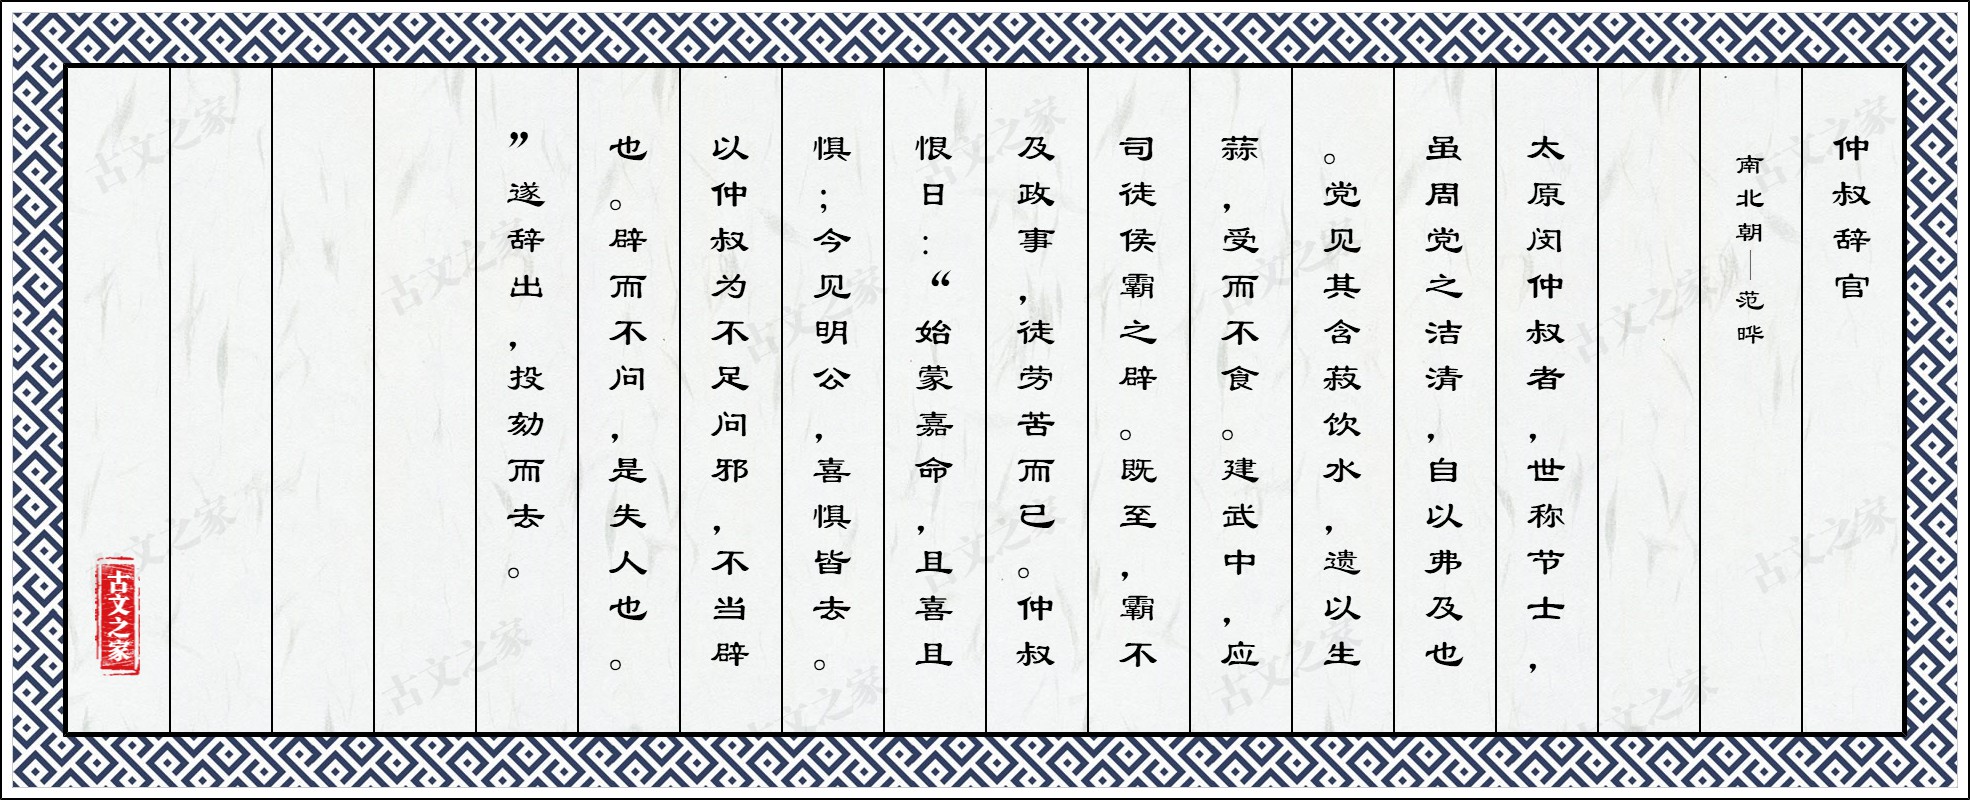 仲叔辞官
南北朝—范晔
太原闵仲叔者，世称节士，
虽周党之洁清，自以弗及也
。党见其含菽饮水，遗以生
蒜，受而不食。建武中，应
司徒侯霸之辟。既至，霸不
及政事，徒劳苦而已。仲叔
恨曰：“始蒙嘉命，且喜且
惧；今见明公，喜惧皆去。
以仲叔为不足问邪，不当辟
也。辟而不问，是失人也。
”遂辞出，投劾而去。
古文之家